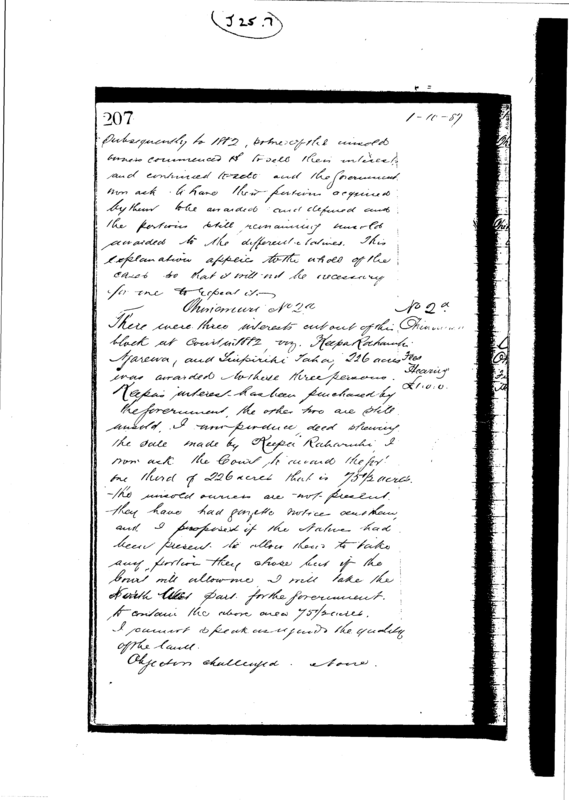 J 25.7
207
1-10-87
Subsequently to 1882, some of the unsold
owners commenced to sell their interests
and continued to sell and the Government
now ask to have their portions acquired
by them to be awarded and defined and
the portions still remaining unsold
awarded to the different natives. This
explanation applies to the whole of the
cases so that it will not be necessary
for me to repeat it.
Ohinemuri No 2a
No 2a
There were three interests cut out of this
block at Court in 1882 viz. Keepa Raharuhi
and 226 acres
was awarded to these three persons.
Hearing
£1.0.0
Keepa's interest has been purchased by
the Government, the other two are still
unsold, I now produce deed shewing
the sale made by Keepa Raharuhi I
now ask the Court to award the Gov
one third of 226 acres that is 75 1/2 acres.
the unsold owners are not present.
they have had gazette notice
and I proposed if the Natives had
been present to allow them to take
any portion they chose but if the
Court will allow me I will take the
North West part for the Government.
to contain the above area 75 1/2 acres.
I cannot speak as regards the quality
of the land.
Objectors challenged. None.